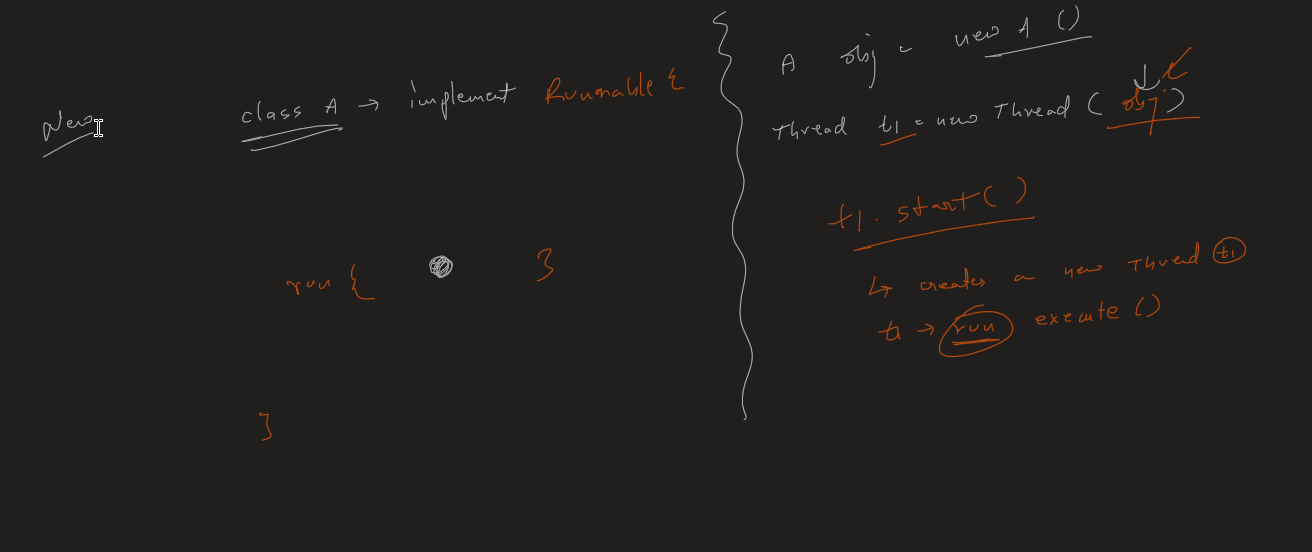 New
class A → implement Runnable {
run { }
}
A obj = new A ()
Thread t1 = new Thread ( obj )
t1. start( )
↳ creates a new Thread t1
t1 → run execute ()